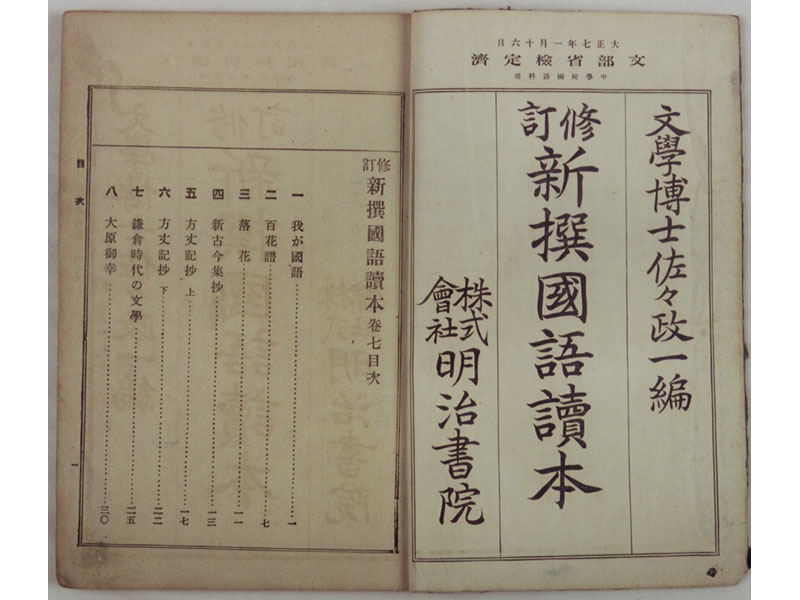 大正七年一月十六日
文部省檢定濟
中學校國語科用
文學博士佐々政一編
修訂 新撰國語讀本
株式會社 明治書院
修訂 新撰國語讀本 卷七目次
一 我が國語…一
二 百花譜…七
三 落花…一一
四 新古今集抄…一三
五 方丈記抄 上…一七
六 方丈記抄 下…二二
七 鎌倉時代の文學…二五
八 大原御幸…三〇
目次
一